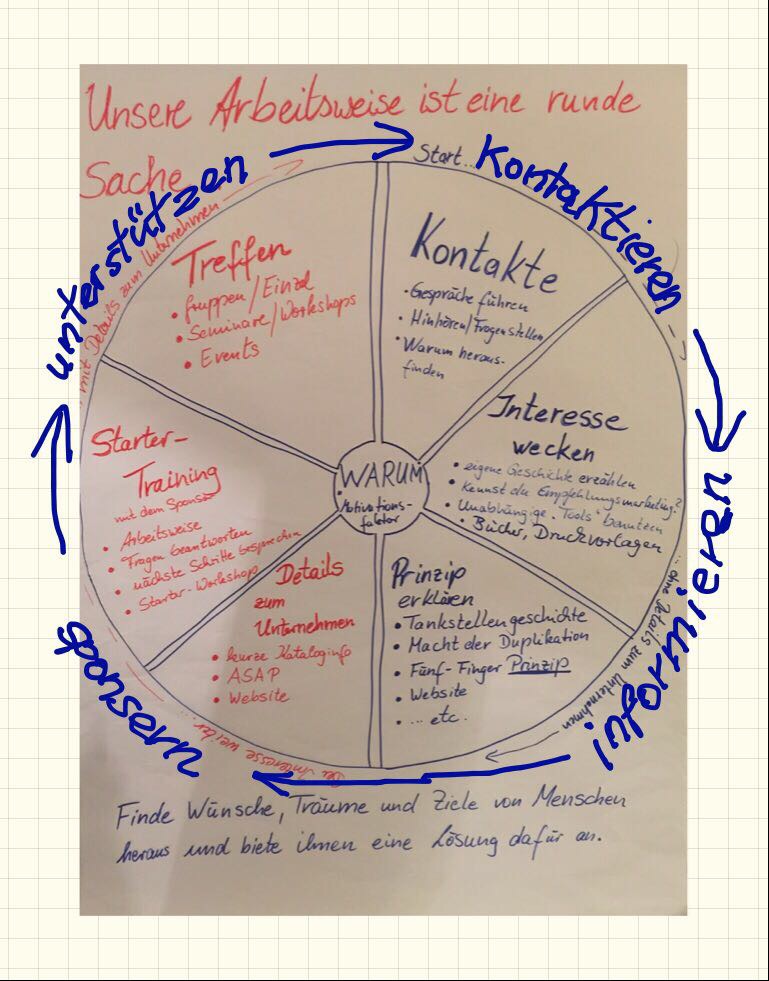 Unsere Arbeitsweise ist eine runde
Sache
Start...
Kontaktieren
informieren
sponsern
unterstützen
Kontakte
• Gespräche führen
• Hinhören/Fragen stellen
• Warum heraus-
finden
Interesse
wecken
• eigene Geschichte erzählen
• Kennst du Empfehlungsmarketing?
• Unabhängige "Tools" benutzen
• Bücher, Druckvorlagen
... ohne Details zum Unternehmen
Prinzip
erklären
• Tankstellengeschichte
• Macht der Duplikation
• Fünf-Finger Prinzip
• Website
• ... etc.
Details
zum
Unternehmen
• kurze Kataloginfo
• ASAP
• Website
Bei Interesse weiter...
Starter-
Training
mit dem Sponsor
• Arbeitsweise
• Fragen beantworten
• nächste Schritte besprechen
• Starter-Workshop
... mit Details zum Unternehmen
Treffen
• Gruppen/Einzel
• Seminare/Workshops
• Events
WARUM
• Motivations-
faktor
Finde Wünsche, Träume und Ziele von Menschen
heraus und biete ihnen eine Lösung dafür an.